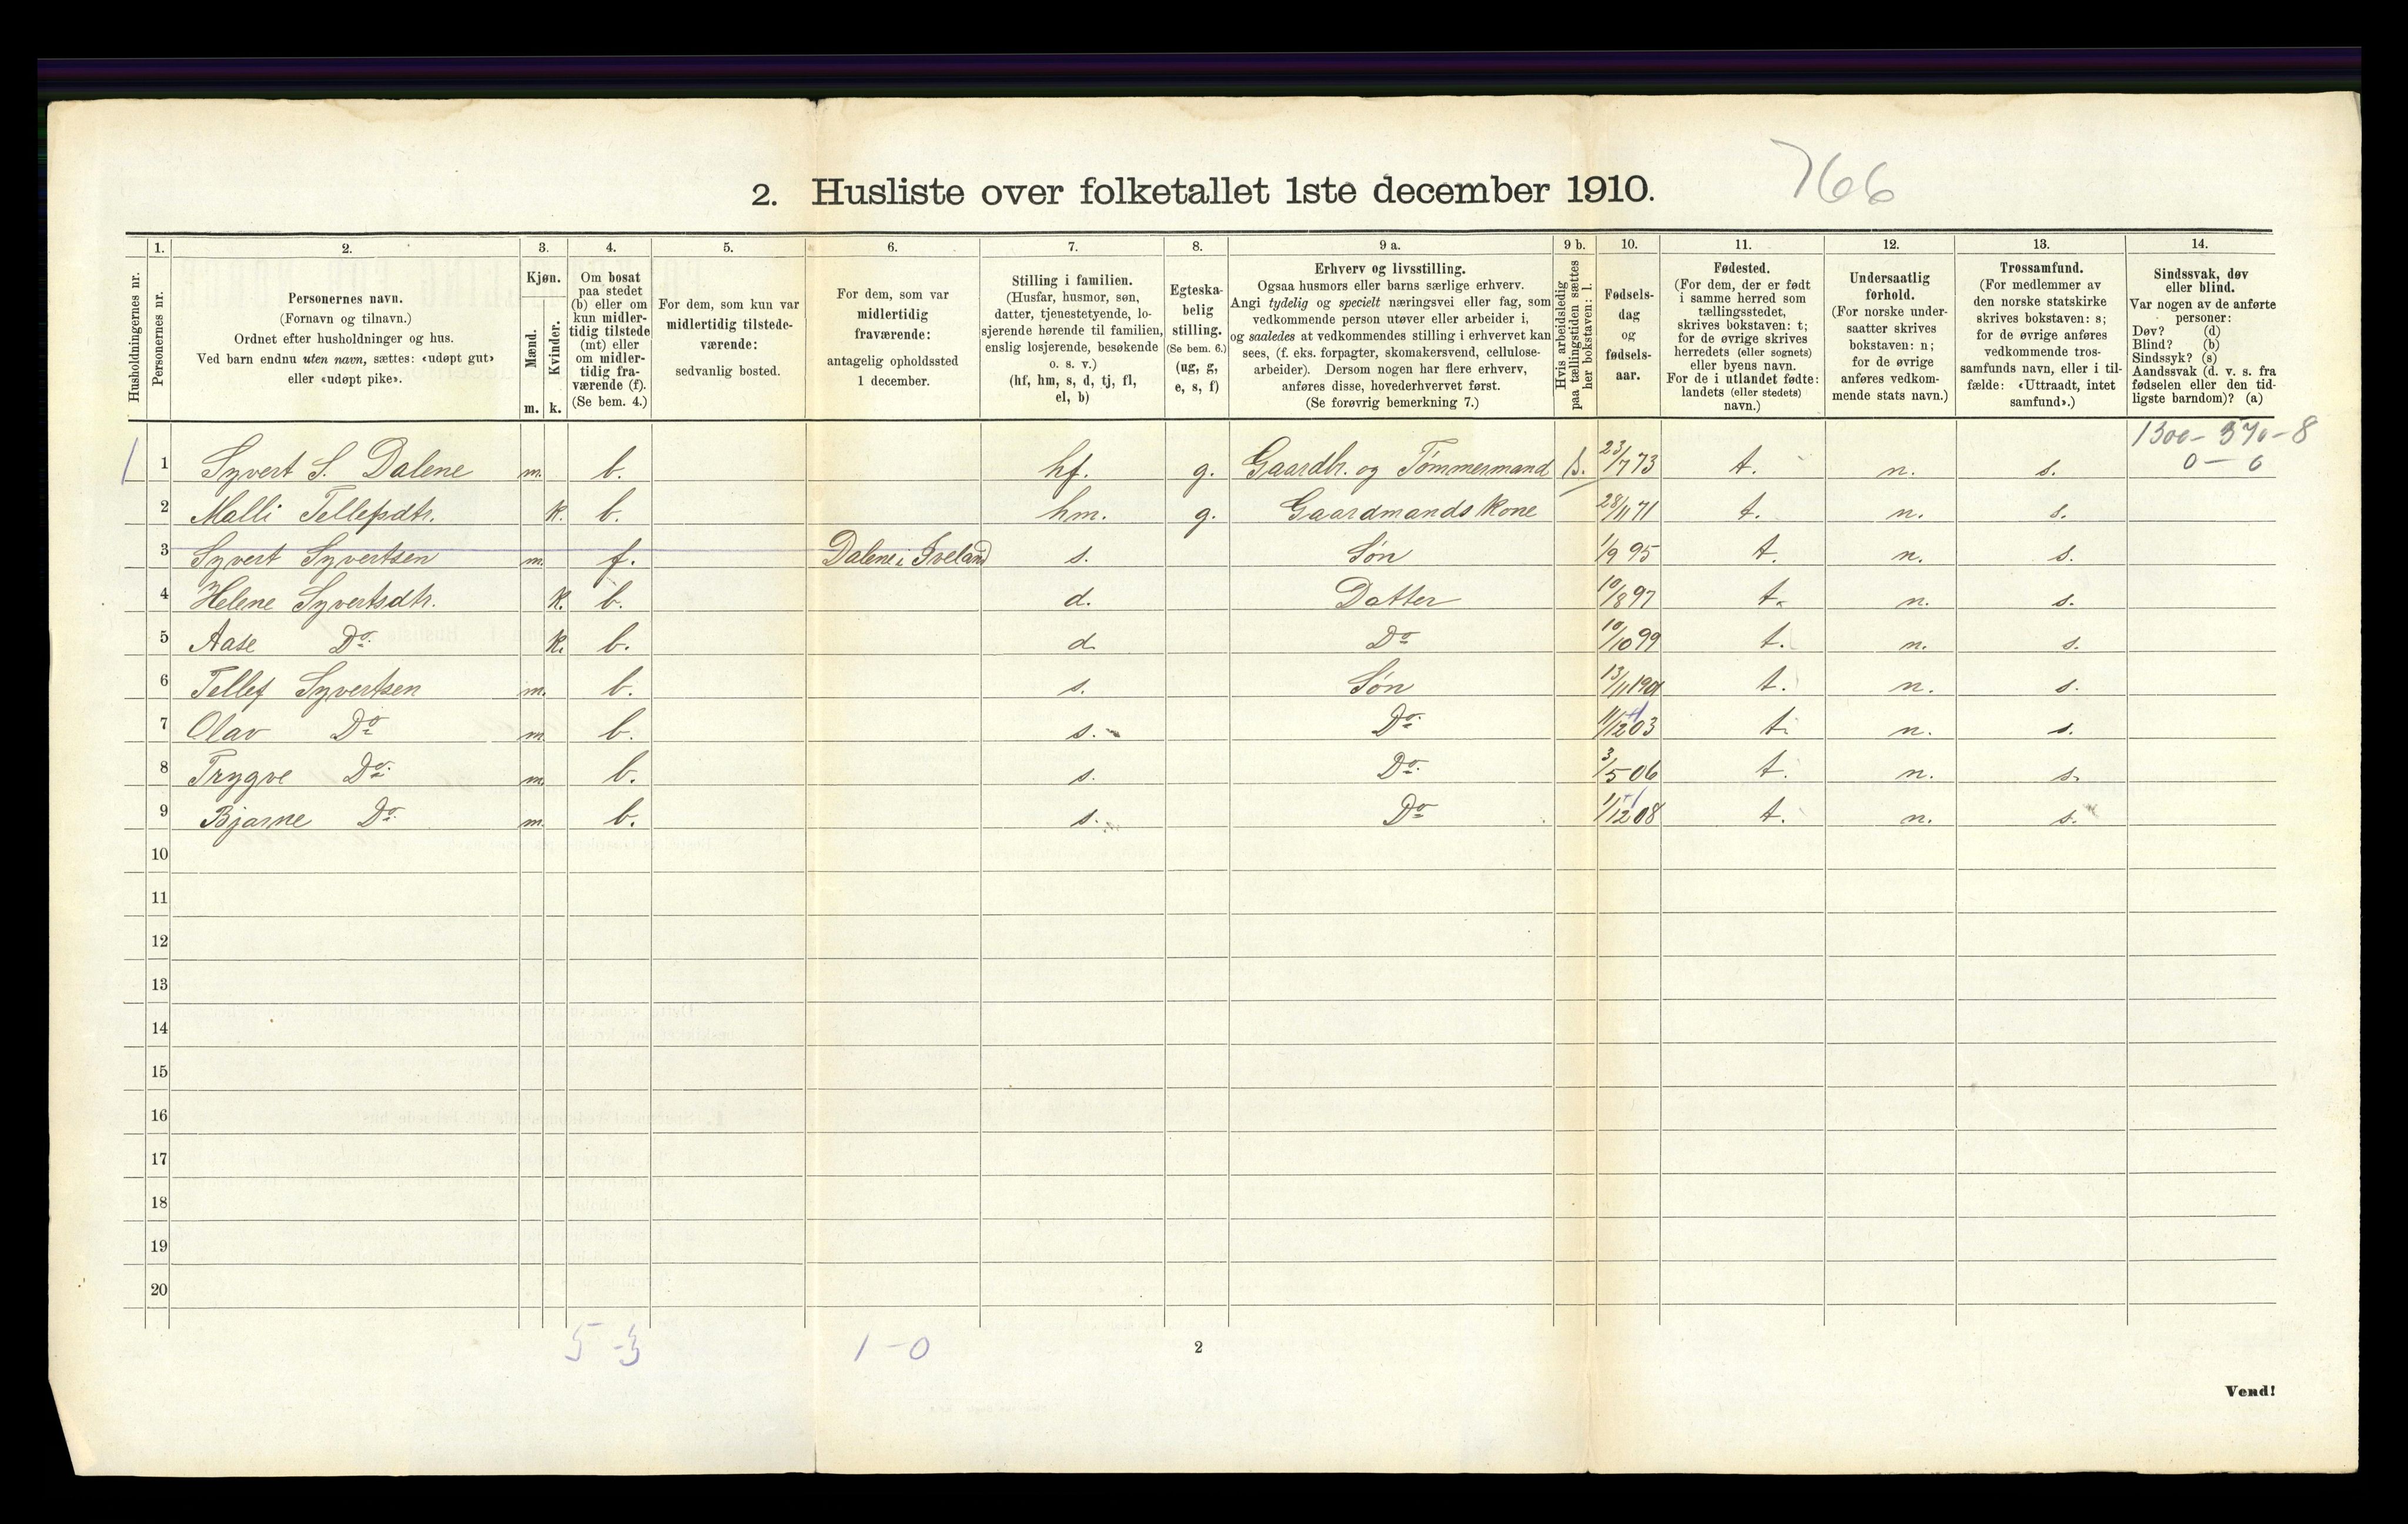 766
2. Husliste over folketallet 1ste december 1910.
Husholdningernes nr.
1.
Personernes nr.
2.
Personernes navn.
(Fornavn og tilnavn.)
Ordnet efter husholdninger og hus.
Ved barn endnu uten navn, sættes: «udøpt gut»
eller «udøpt pike».
3.
Kjøn.
Mænd.
m.
Kvinder.
k.
4.
Om bosat
paa stedet
(b) eller om
kun midler-
tidig tilstede
(mt) eller
om midler-
tidig fra-
værende (f).
(Se bem. 4.)
5.
For dem, som kun var
midlertidig tilstede-
værende:
sedvanlig bosted.
6.
For dem, som var
midlertidig
fraværende:
antagelig opholdssted
1 december.
7.
Stilling i familien.
(Husfar, husmor, søn,
datter, tjenestetyende, lo-
sjerende hørende til familien,
enslig losjerende, besøkende
o. s. v.)
(hf, hm, s, d, tj, fl,
el, b)
8.
Egteska-
belig
stilling.
(Se bem. 6.)
(ug, g,
e, s, f)
9 a.
Erhverv og livsstilling.
Ogsaa husmors eller barns særlige erhverv.
Angi tydelig og specielt næringsvei eller fag, som
vedkommende person utøver eller arbeider i,
og saaledes at vedkommendes stilling i erhvervet kan
sees, (f. eks. forpagter, skomakersvend, cellulose-
arbeider). Dersom nogen har flere erhverv,
anføres disse, hovederhvervet først.
(Se forøvrig bemerkning 7.)
9 b.
Hvis arbeidsledig
paa tællingstiden sættes
her bokstaven: l.
10.
Fødsels-
dag
og
fødsels-
aar.
11.
Fødested.
(For dem, der er født
i samme herred som
tællingsstedet,
skrives bokstaven: t;
for de øvrige skrives
herredets (eller sognets)
eller byens navn.
For de i utlandet fødte:
landets (eller stedets)
navn.)
12.
Undersaatlig
forhold.
(For norske under-
saatter skrives
bokstaven: n;
for de øvrige
anføres vedkom-
mende stats navn.)
13.
Trossamfund.
(For medlemmer av
den norske statskirke
skrives bokstaven: s;
for de øvrige anføres
vedkommende tros-
samfunds navn, eller i til-
fælde: «Uttraadt, intet
samfund».)
14.
Sindssvak, døv
eller blind.
Var nogen av de anførte
personer:
Døv? (d)
Blind? (b)
Sindssyk? (s)
Aandssvak (d. v. s. fra
fødselen eller den tid-
ligste barndom)? (a)
1300 - 370 - 8
0 - 0
1 1 Syvert S. Dalene m. b. hf. g. Gaardbr. og Tømmermand 23/7 73 t. n. s.
2 Malli Tellefsdtr. k. b. hm. g. Gaardmands Kone 28/11 71 t. n. s.
3 Syvert Syvertsen m. f. Dalene i Iveland s. Søn 1/9 95 t. n. s.
4 Helene Syvertsdtr. k. b. d. Datter 10/8 97 t. n. s.
5 Aase Do k. b. d Do 10/10 99 t. n. s.
6 Tellef Syvertsen m. b. s. Søn 13/11 1901 t. n. s.
7 Olav Do m. b. s. Do 11/12 03 t. n. s.
8 Trygve Do m. b. s. Do 3/5 06 t. n. s.
9 Bjarne Do m. b. s. Do 1/12 08 t. n. s.
10
11
12
13
14
15
16
17
18
19
20
5 - 3
1 - 0
2
Vend!